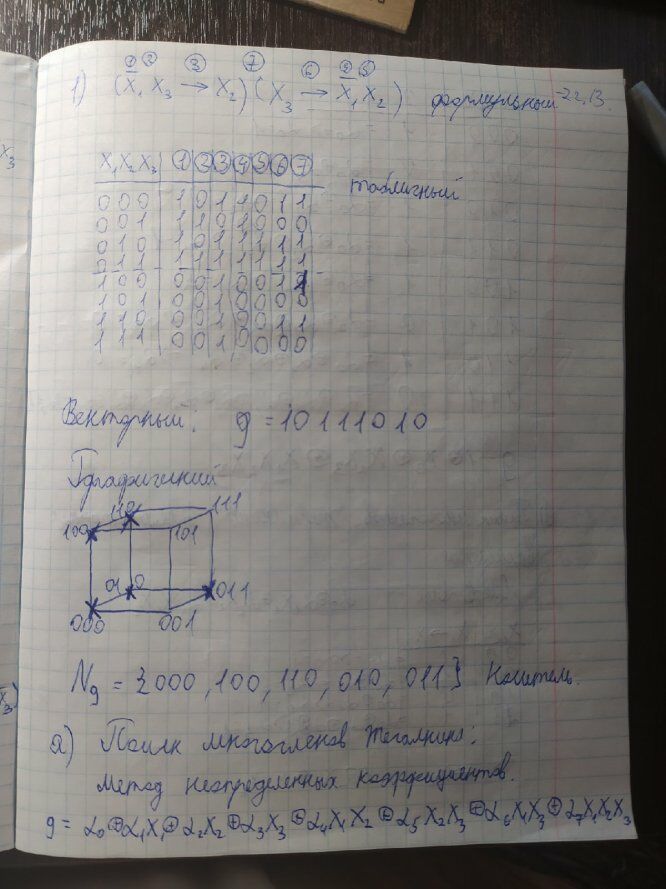 ① ② ③ ⑦ ⑥ ④ ⑤
1) (X̅₁ X₃ → X₂)(X₃ → X̅₁ X₂) формульный
X₁X₂X₃ ① ② ③ ④ ⑤ ⑥ ⑦ табличный
0 0 0 1 0 1 1 0 1 1
0 0 1 1 1 0 1 0 0 0
0 1 0 1 0 1 1 1 1 1
0 1 1 1 1 1 1 1 1 1
1 0 0 0 0 1 0 0 1 1
1 0 1 0 0 1 0 0 0 0
1 1 0 0 0 1 0 0 1 1
1 1 1 0 0 1 0 0 0 0
Векторный: g = 10111010
Графический
110 111
100 101
010 011
000 001
Ng = {000, 100, 110, 010, 011} Носитель.
а) Поиск многочленов Жегалкина:
Метод неопределенных коэффициентов.
g = α₀ ⊕ α₁X₁ ⊕ α₂X₂ ⊕ α₃X₃ ⊕ α₄X₁X₂ ⊕ α₅X₂X₃ ⊕ α₆X₁X₃ ⊕ α₇X₁X₂X₃